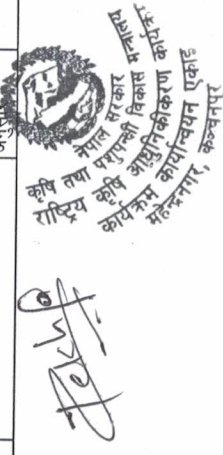 नेपाल सरकार
कृषि तथा पशुपन्छी विकास मन्त्रालय
राष्ट्रिय कृषि आधुनिकीकरण कार्यक्रम
कार्यक्रम कार्यान्वयन एकाइ
महेन्द्रनगर, कञ्चनपुर